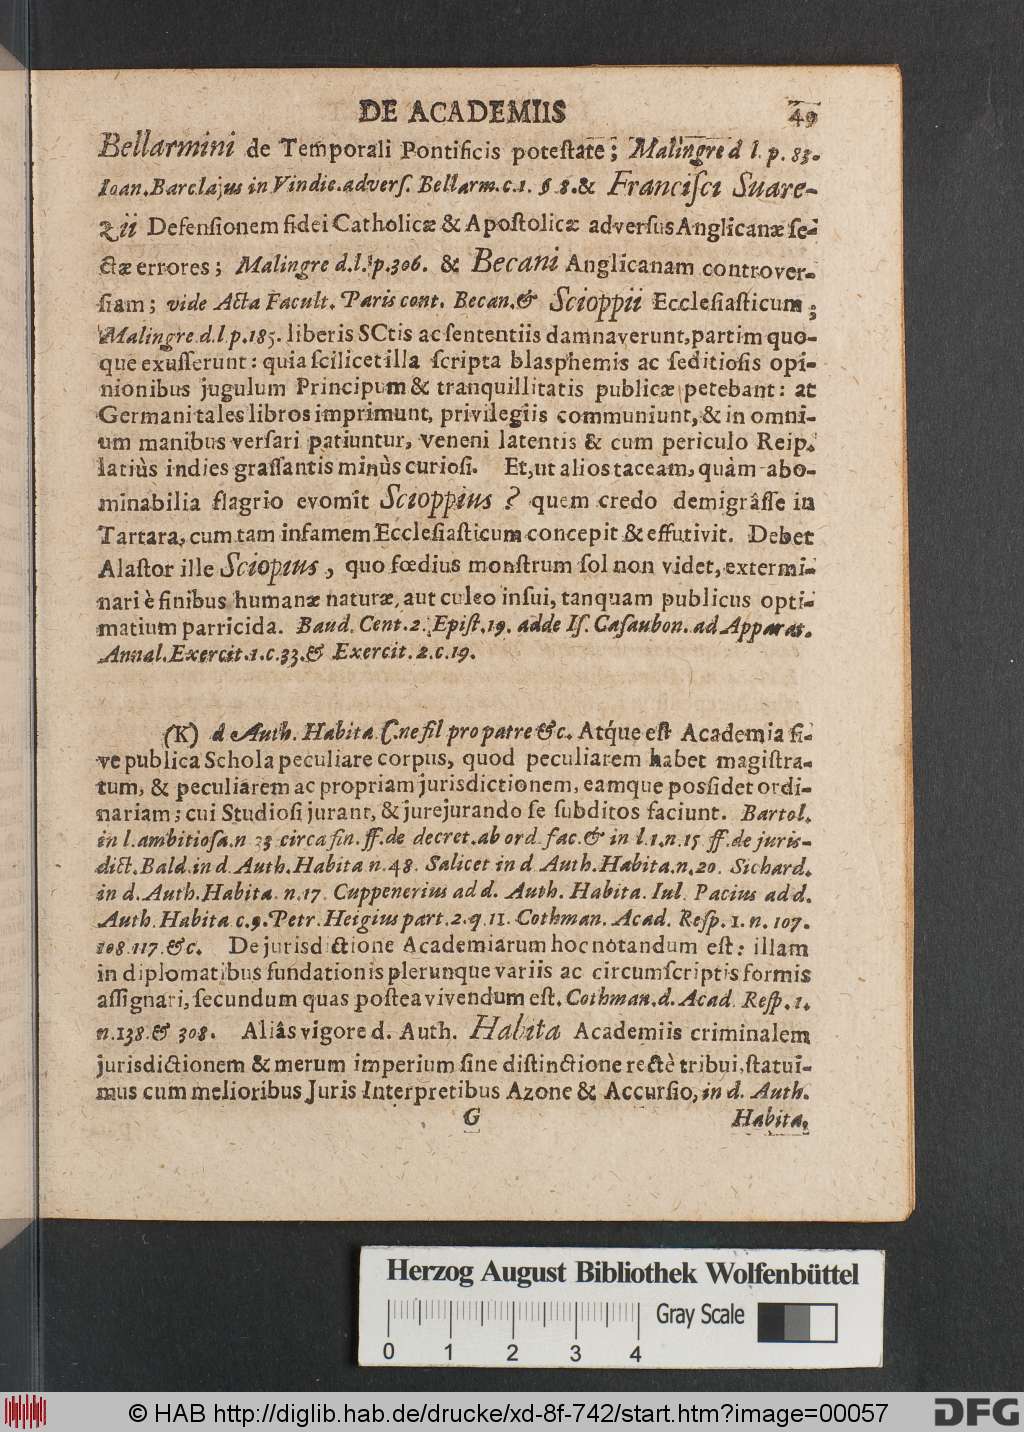 DE ACADEMIIS 49
Bellarmini de Temporali Pontificis poteſtate; Malingre d l. p. 83.
Ioan. Barclajus in Vindic. adverſ. Bellarm. c. 1. § 8. & Franciſci Suare-
zii Defenſionem fidei Catholicæ & Apoſtolicæ adverſus Anglicanæ ſe-
ctæ errores; Malingre d. l. p. 306. & Becani Anglicanam controver-
ſiam; vide Acta Facult. Pariſ cont. Becan. & Scioppii Eccleſiaſticum;
Malingre d. l. p. 185. liberis SCtis ac ſententiis damnaverunt, partim quo-
que exuſſerunt: quia ſcilicet illa ſcripta blasphemis ac ſeditioſis opi-
nionibus jugulum Principum & tranquillitatis publicæ petebant: at
Germani tales libros imprimunt, privilegiis communiunt, & in omni-
um manibus verſari patiuntur, veneni latentis & cum periculo Reip.
latiùs indies graſſantis minùs curioſi. Et, ut alios taceam, quàm abo-
minabilia flagrio evomit Scioppius? quem credo demigrâſſe in
Tartara, cum tam infamem Eccleſiaſticum concepit & effutivit. Debet
Alaſtor ille Sciopius, quo fœdius monſtrum ſol non videt, extermi-
nari è finibus humanæ naturæ, aut culeo inſui, tanquam publicus opti-
matium parricida. Baud. Cent. 2. Epiſt. 19. adde Iſ. Caſaubon. ad Apparat.
Annal. Exercit. 1. c. 33. & Exercit. 2. c. 19.
(K) d Auth. Habita C. ne fil pro patre &c. Atque eſt Academia ſi-
ve publica Schola peculiare corpus, quod peculiarem habet magiſtra-
tum, & peculiarem ac propriam jurisdictionem, eamque poſſidet ordi-
nariam; cui Studioſi jurant, & jurejurando ſe ſubditos faciunt. Bartol.
in l. ambitioſa. n 23 circa fin. ff. de decret. ab ord. fac. & in l. 1. n. 15 ff. de juris-
dict. Bald. in d. Auth. Habita n. 48. Salicet in d. Auth. Habita. n. 20. Sichard.
in d. Auth. Habita. n. 17. Cuppenerius ad d. Auth. Habita. Iul. Pacius ad d.
Auth. Habita c. 9. Petr. Heigius part. 2. q. 11. Cothman. Acad. Reſp. 1. n. 107.
108. 117. &c. De jurisdictione Academiarum hoc notandum eſt: illam
in diplomatibus fundationis plerunque variis ac circumſcriptis formis
aſſignari, ſecundum quas poſtea vivendum eſt. Cothman. d. Acad. Reſp. 1.
n. 138. & 308. Aliâs vigore d. Auth. Habita Academiis criminalem
jurisdictionem & merum imperium ſine diſtinctione rectè tribui, ſtatui-
mus cum melioribus Juris Interpretibus Azone & Accurſio, in d. Auth.
G Habita,
Herzog August Bibliothek Wolfenbüttel
Gray Scale
0 1 2 3 4
© HAB http://diglib.hab.de/drucke/xd-8f-742/start.htm?image=00057
DFG